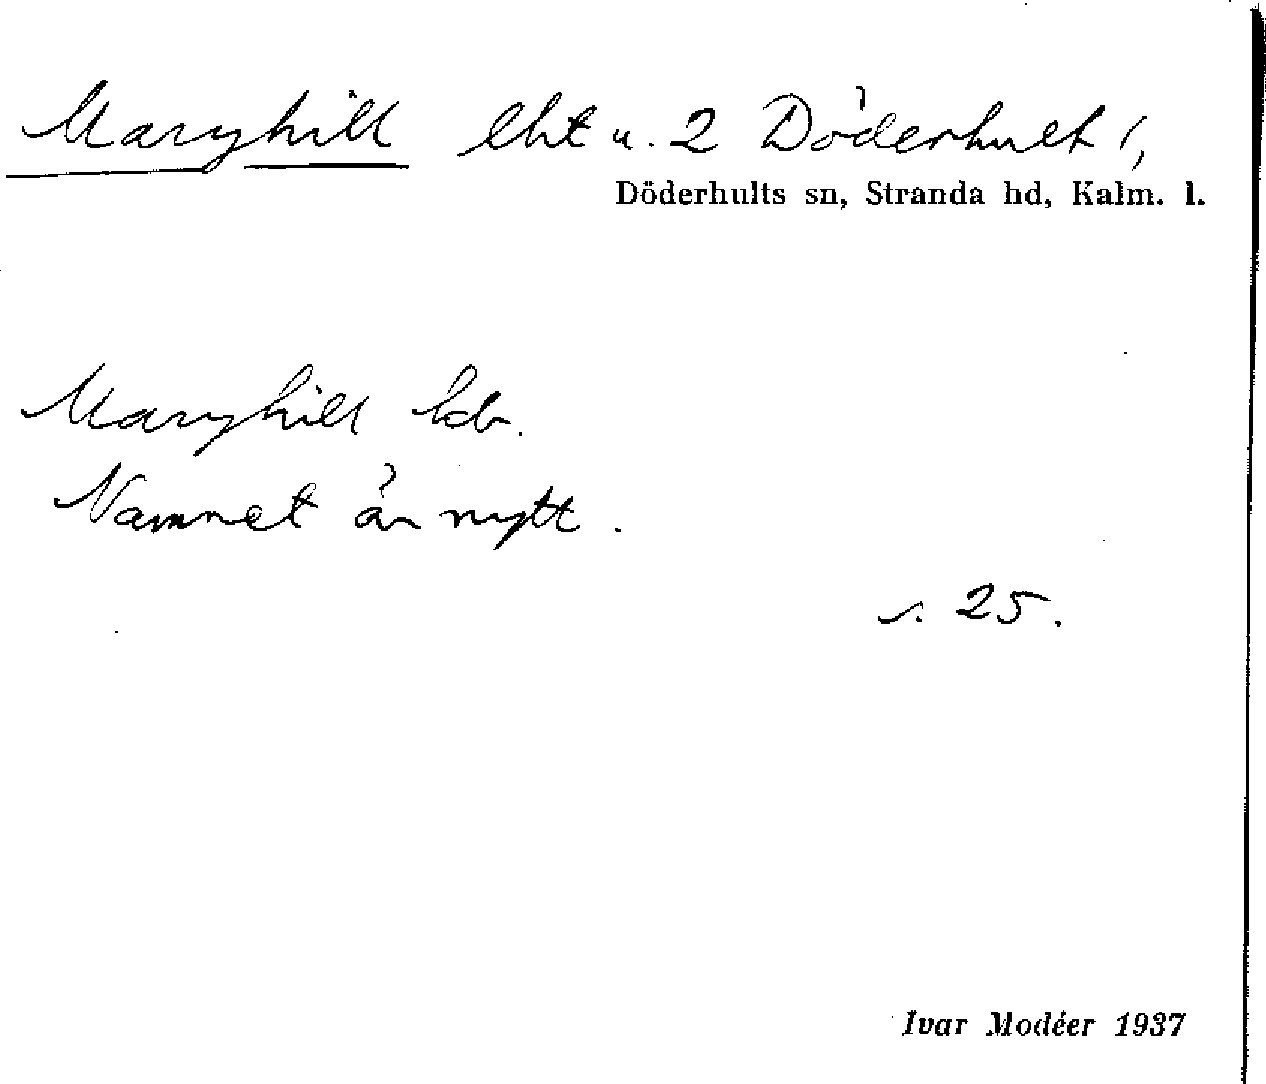 Maryhill lht u. 2 Döderhult 1,
Döderhults sn, Stranda hd, Kalm. l.
Maryhill kb.
Namnet är nytt.
s. 25.
Ivar Modéer 1937